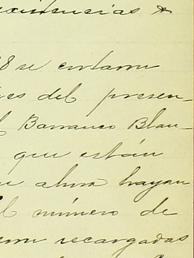 existencias &
8 se entarm
es del presen
l Barranco Blan
que están
ahora hayan
el número de
recargadas